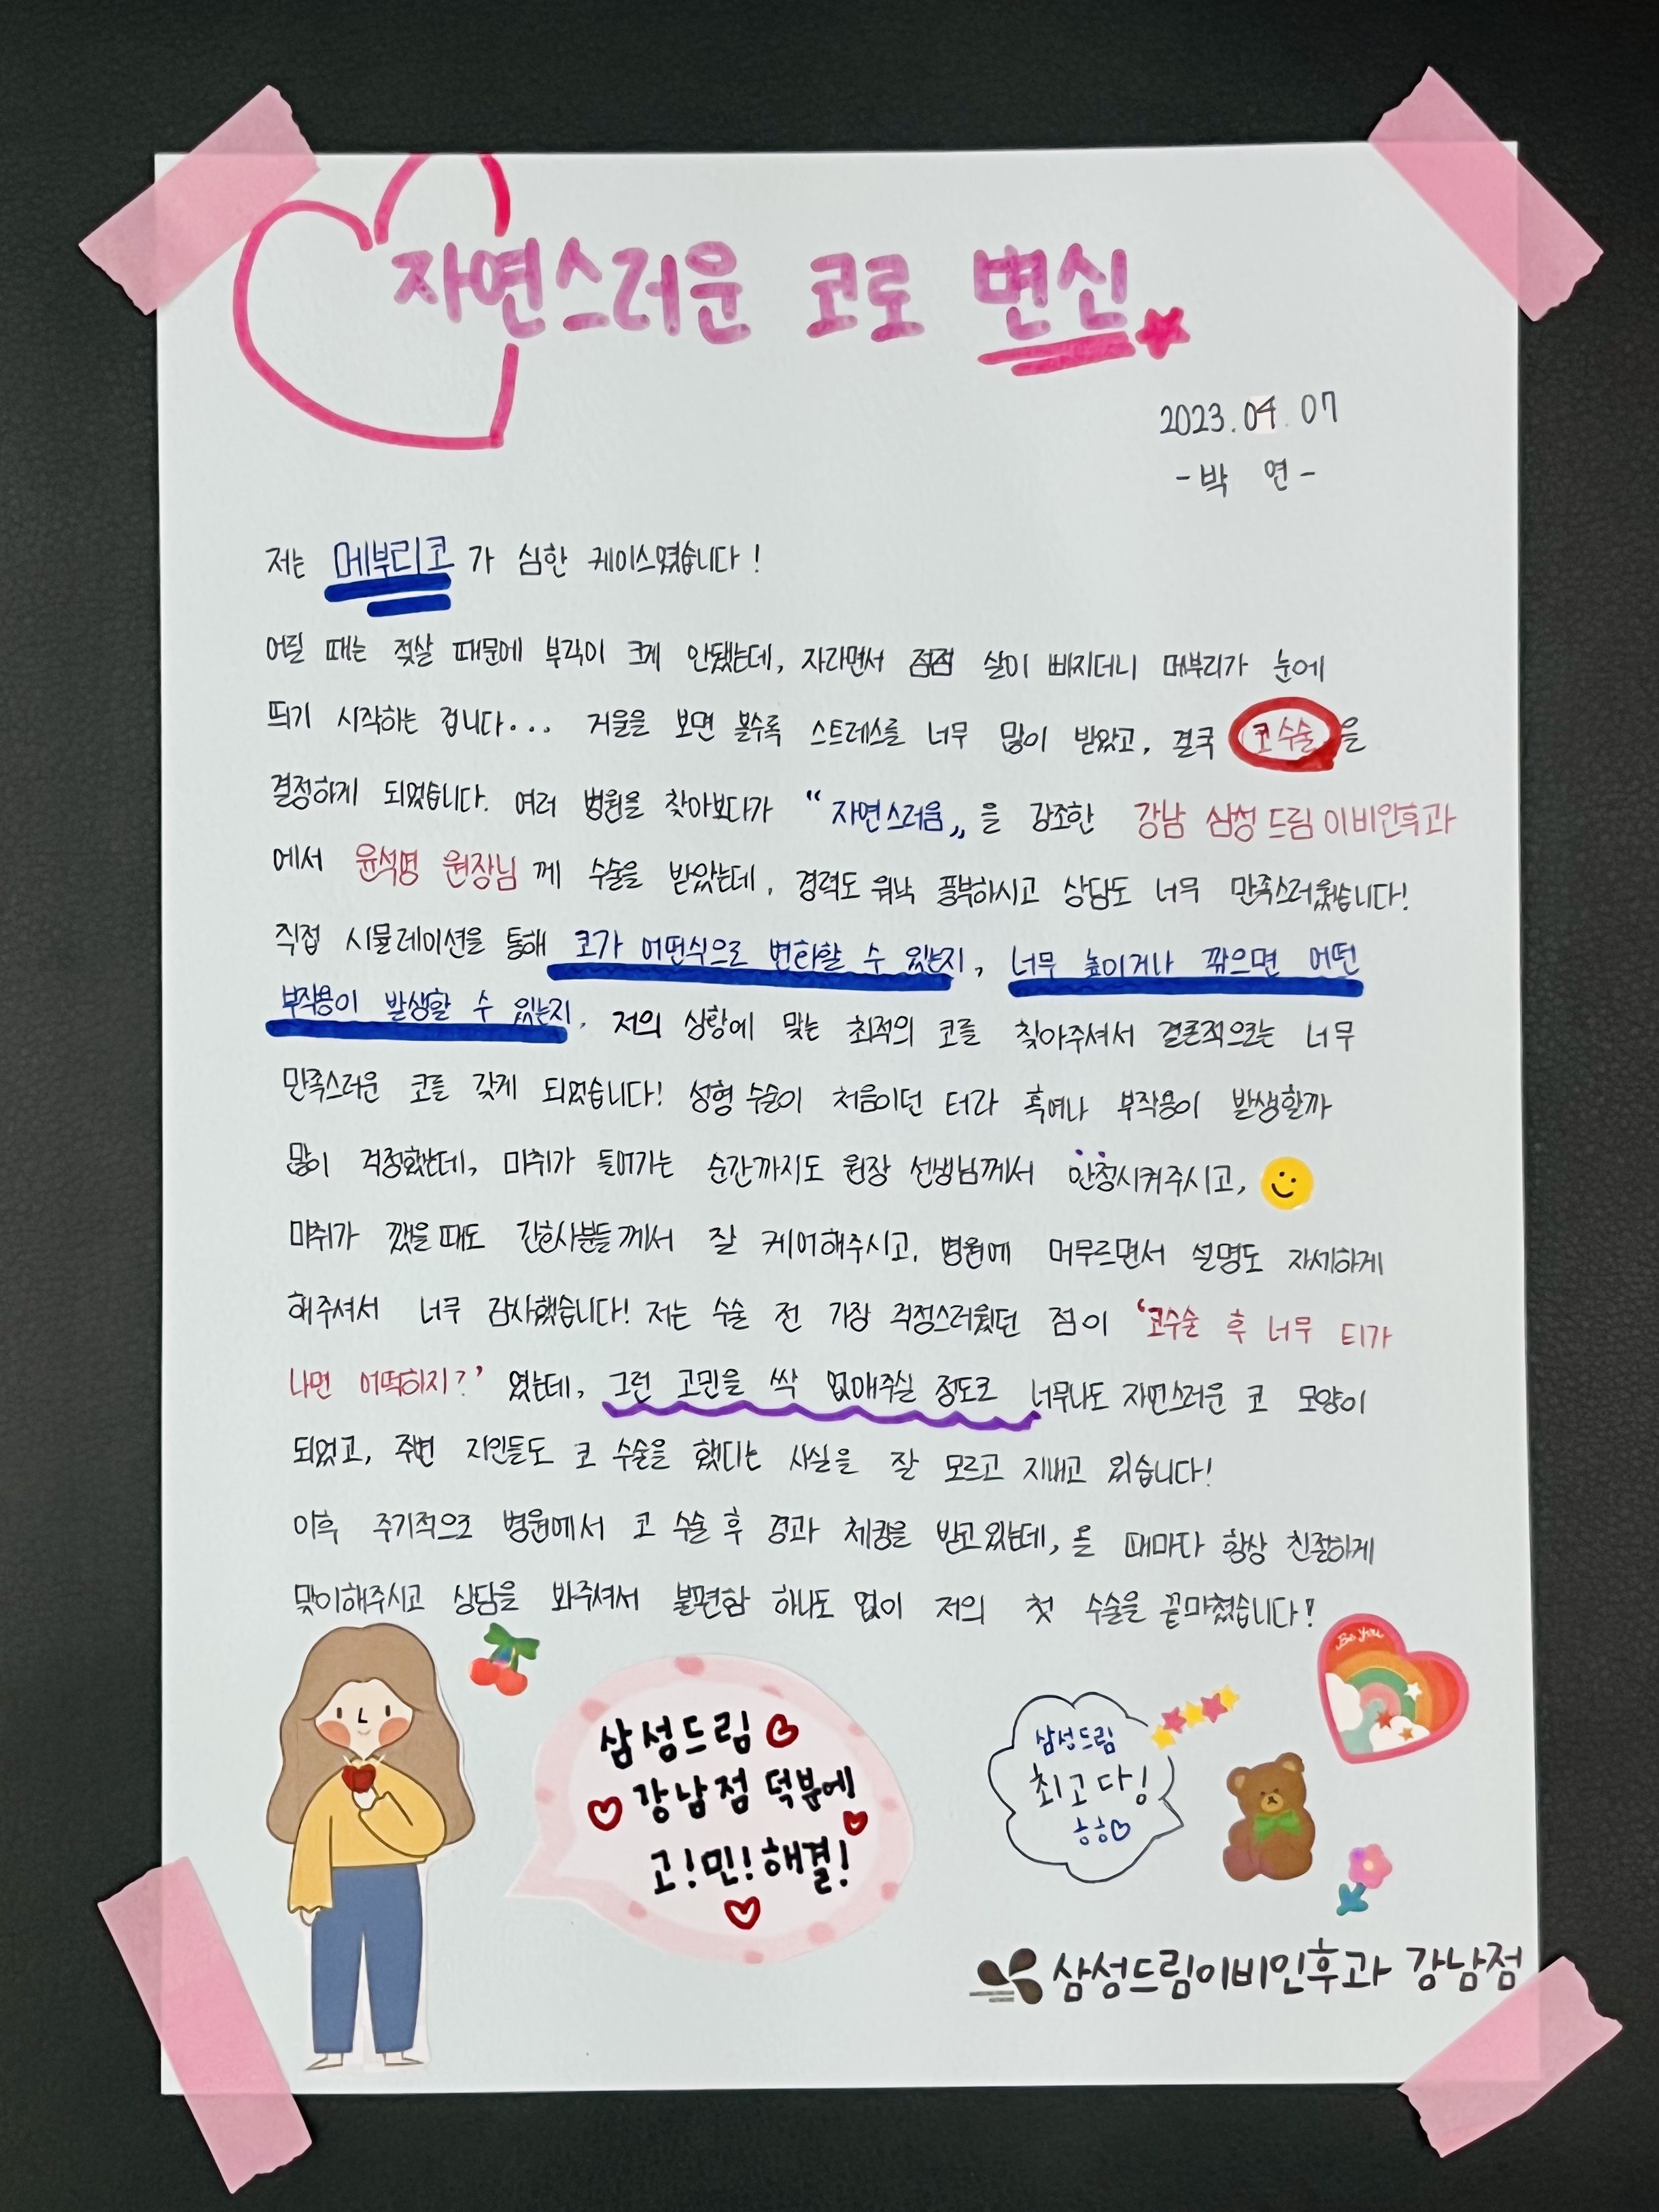 자연스러운 코로 변신
2023.04.07
-박 연-
저는 메부리코가 심한 케이스였습니다!
어릴 때는 젖살 때문에 부각이 크게 안됐는데, 자라면서 점점 살이 빠지더니 메부리가 눈에
띄기 시작하는 겁니다... 거울을 보면 볼수록 스트레스를 너무 많이 받았고, 결국 코수술을
결정하게 되었습니다. 여러 병원을 찾아보다가 "자연스러움"을 강조한 강남 삼성드림이비인후과
에서 윤석명 원장님께 수술을 받았는데, 경력도 워낙 풍부하시고 상담도 너무 만족스러웠습니다!
직접 시뮬레이션을 통해 코가 어떤식으로 변화할 수 있는지, 너무 높이거나 깎으면 어떤
부작용이 발생할 수 있는지, 저의 상황에 맞는 최적의 코를 찾아주셔서 결론적으로는 너무
만족스러운 코를 갖게 되었습니다! 성형 수술이 처음이던 터라 혹여나 부작용이 발생할까
많이 걱정했는데, 마취가 들어가는 순간까지도 원장 선생님께서 안정시켜주시고,
마취가 깼을때도 간호사분들께서 잘 케어해주시고, 병원에 머무르면서 설명도 자세하게
해주셔서 너무 감사했습니다! 저는 수술 전 가장 걱정스러웠던 점이 '코수술 후 너무 티가
나면 어떡하지?' 였는데, 그런 고민을 싹 없애주실 정도로 너무나도 자연스러운 코 모양이
되었고, 주변 지인들도 코 수술을 했다는 사실을 잘 모르고 지내고 있습니다!
이후 주기적으로 병원에서 코 수술 후 경과 체크를 받고있는데, 올 때마다 항상 친절하게
맞이해주시고 상담을 봐주셔서 불편함 하나도 없이 저의 첫 수술을 끝마쳤습니다!
Be You
삼성드림
강남점 덕분에
고!민!해결!
삼성드림
최고다!
ㅎㅎ♡
삼성드림이비인후과 강남점